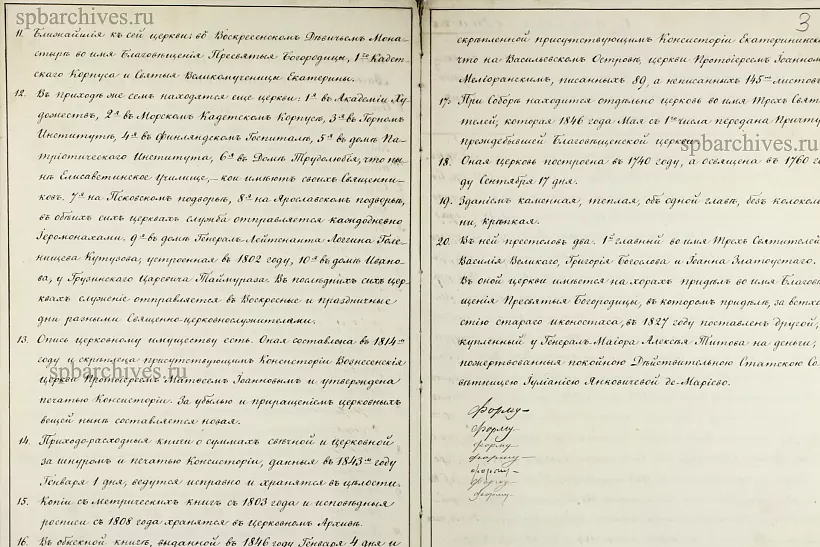 spbarchives.ru
11. Ближайшія къ сей церкви: въ Воскресенскомъ Дѣвичьемъ Мона-
стырѣ во имя Благовѣщенія Пресвятыя Богородицы, 1го Кадет-
скаго Корпуса и Святыя Великомученицы Екатерины.
12. Въ приходѣ же семъ находятся еще церкви: 1я въ Академіи Ху-
дожествъ, 2я въ Морскомъ Кадетскомъ Корпусѣ, 3я въ Горномъ
Институтѣ, 4я въ Финляндскомъ Госпиталѣ, 5я въ домѣ Па-
тріотическаго Института, 6я въ Домѣ Трудолюбія, что ны-
нѣ Елисаветинское Училище, – кои имѣютъ своихъ Священни-
ковъ. 7я на Псковскомъ подворьѣ, 8я на Ярославскомъ подворьѣ,
въ обѣихъ сихъ церквахъ служба отправляется каждодневно
Іеромонахами. 9я въ домѣ Генералъ-Лейтенанта Логгина Голе-
нищева Кутузова; устроенная въ 1802 году, 10я въ домѣ Ивано-
ва, у Грузинскаго Царевича Таймураза. Въ послѣднихъ сихъ цер-
квахъ служеніе отправляется въ Воскресные и праздничные
дни разными Священно-церковнослужителями.
13. Опись церковному имуществу есть. Оная составлена въ 1814м
году и скрѣплена присутствующимъ Консисторіи Вознесенскія
церкви Протоіереемъ Матѳеемъ Іоанновымъ и утверждена
печатью Консисторіи. За убылью и приращеніемъ церковныхъ
вещей нынѣ составляется новая.
spbarchives.ru
14. Приходо-расходныя книги о суммахъ свѣчной и церковной
за шнуромъ и печатью Консисторіи, данныя въ 1843м году
Генваря 1 дня, ведутся исправно и хранятся въ цѣлости.
15. Копіи съ метрическихъ книгъ съ 1803 года и исповѣдныя
росписи съ 1808 года хранятся въ церковномъ Архивѣ.
16. Въ обыскной книгѣ, выданной въ 1846 году Генваря 4 дня и
3
скрѣпленной присутствующимъ Консисторіи Екатерининск
что на Васильевскомъ Островѣ, церкви Протоіереемъ Іоанном
Меліоранскимъ, писанныхъ 89, а неписанныхъ 145ть листов
17. При Соборѣ находится отдѣльно церковь во имя Трехъ Святи-
телей, которая 1846 года Мая съ 1го числа передана Причту
преждебывшей Благовѣщенской церкви.
spbarchives.ru
18. Оная церковь построена въ 1740 году, а освящена въ 1760 го-
ду Сентября 17 дня.
19. Зданіемъ каменная, теплая, объ одной главѣ, безъ колоколь
ни, крѣпкая.
20. Въ ней престоловъ два. 1й главный во имя Трехъ Святителей
Василія Великаго, Григорія Богослова и Іоанна Златоустаго.
Въ оной церкви имѣется на хорахъ придѣлъ во имя Благов
щенія Пресвятыя Богородицы, въ которомъ придѣлѣ, за ветхо
стію стараго иконостаса, въ 1827 году поставленъ другой,
купленный у Генералъ-Маіора Алексѣя Титова на деньги,
пожертвованныя покойною Дѣйствительною Статскою Со-
вѣтницею Іуліаніею Янковичевой де-Маріево.
Форму
Форму
форму
форму
форму
форму
форму